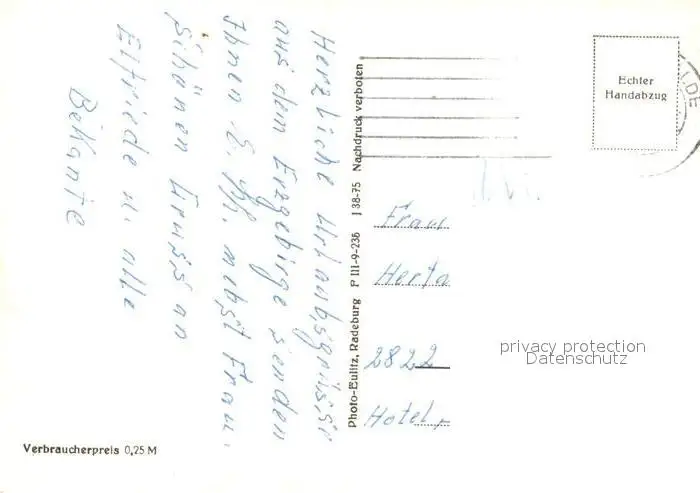 Herzliche Urlaubsgrüsse
aus dem Erzgebirge senden
Ihnen E. mebst Frau.
Schönen Gruss an
Elfriede u. alle
Bekante
Verbraucherpreis 0,25 M
Photo-Eulitz, Radeburg P III-9-236 J 38-75 Nachdruck verboten
Echter
Handabzug
LDE
Frau
Herta
2822
Hotel
privacy protection
Datenschutz